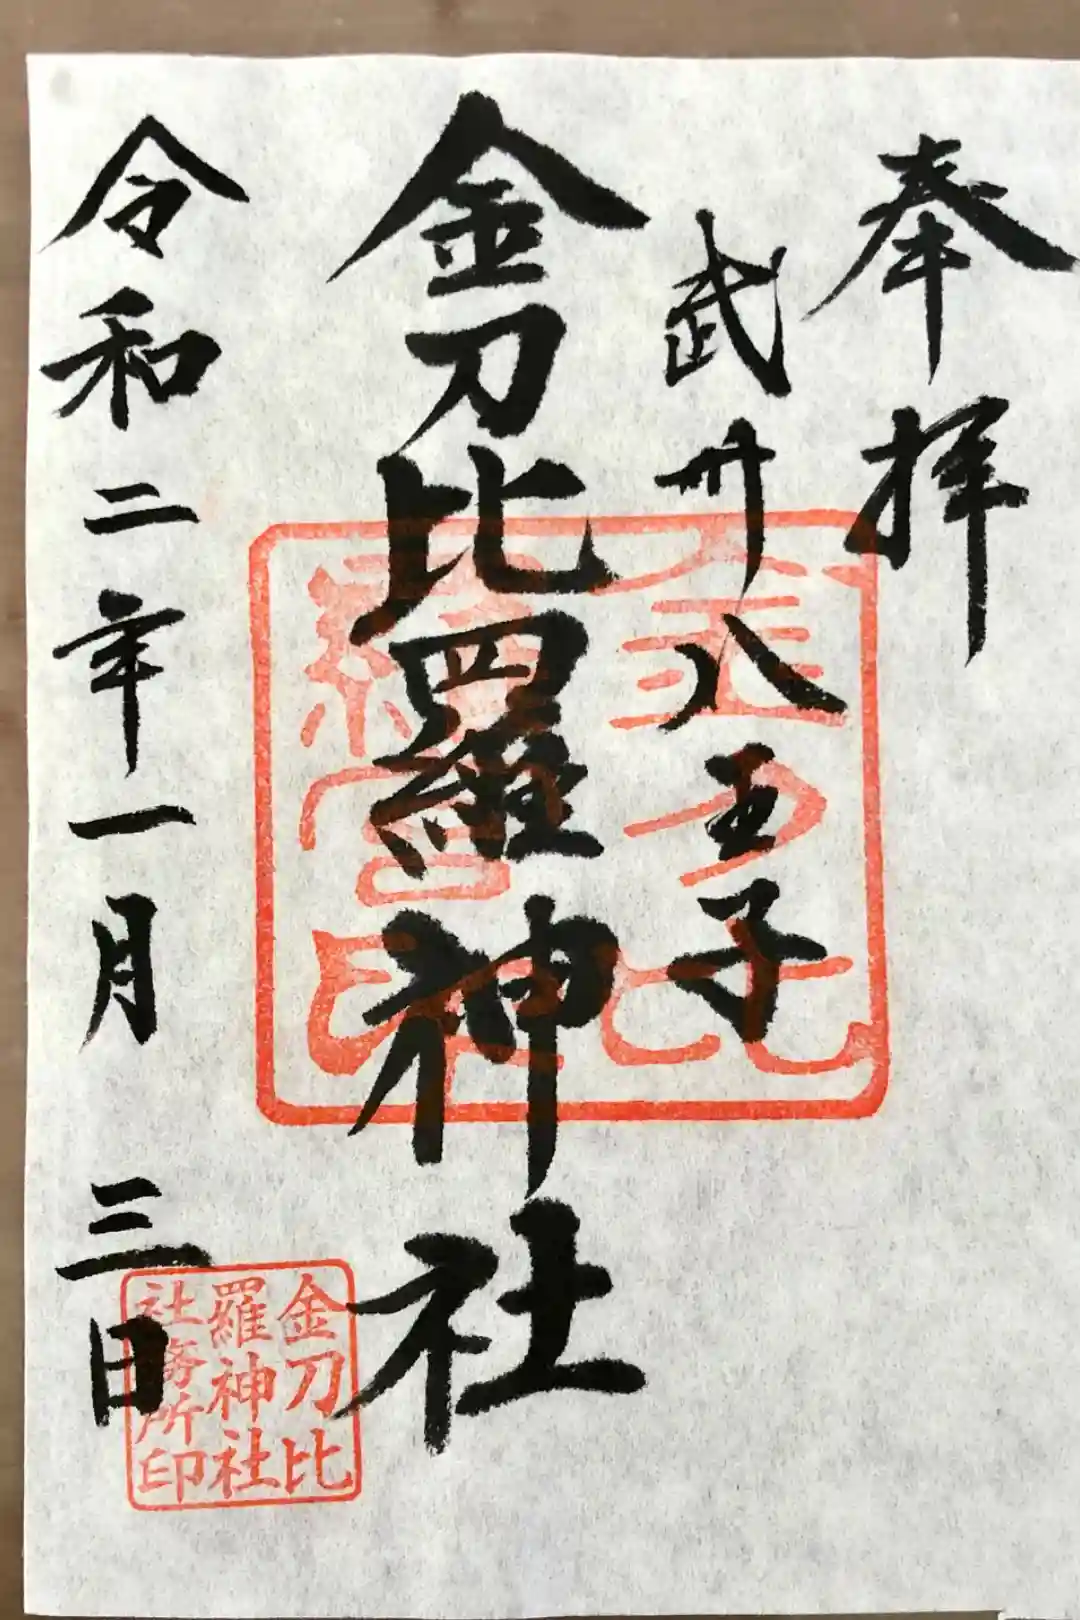 奉拝
武州八王子
金刀比羅神社
令和二年一月三日
金刀比
羅宮印
金刀比
羅神社
社務所印